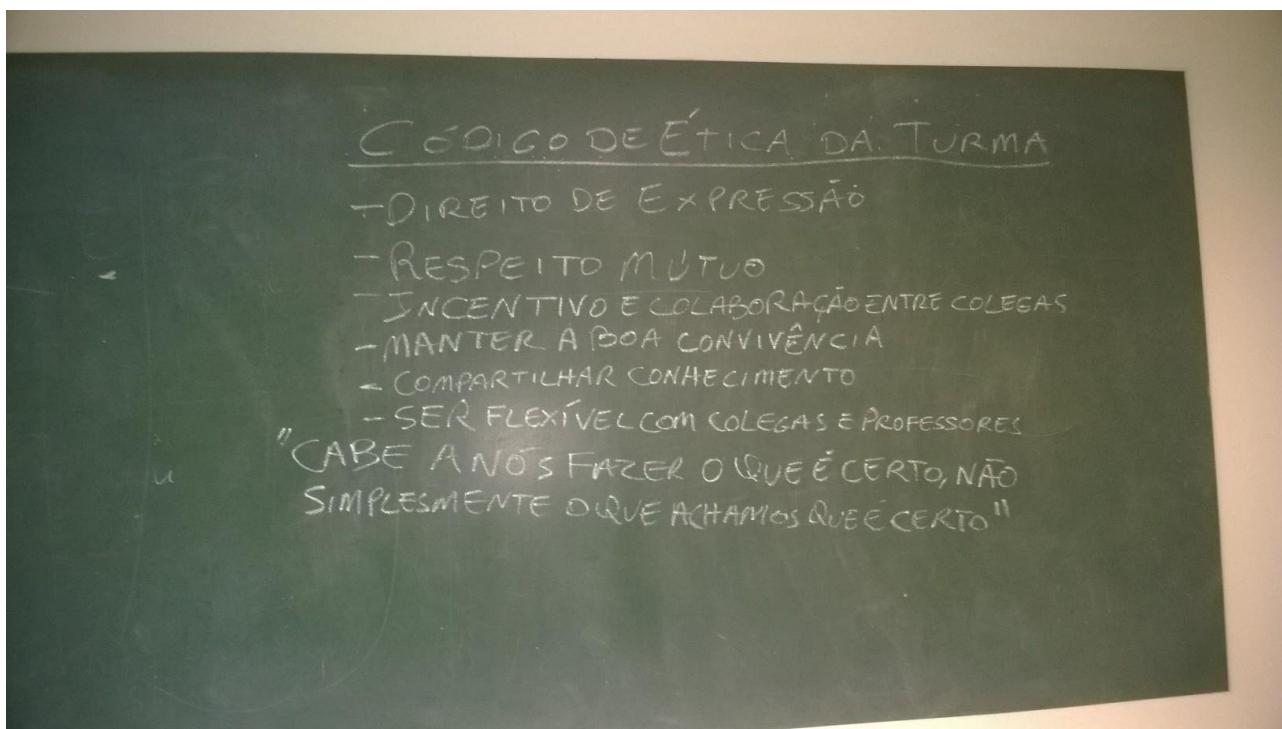 CÓDIGO DE ÉTICA DA TURMA
- DIREITO DE EXPRESSÃO
- RESPEITO MÚTUO
- INCENTIVO E COLABORAÇÃO ENTRE COLEGAS
- MANTER A BOA CONVIVÊNCIA
- COMPARTILHAR CONHECIMENTO
- SER FLEXÍVEL COM COLEGAS E PROFESSORES
"CABE A NÓS FAZER O QUE É CERTO, NÃO
SIMPLESMENTE O QUE ACHAMOS QUE É CERTO"